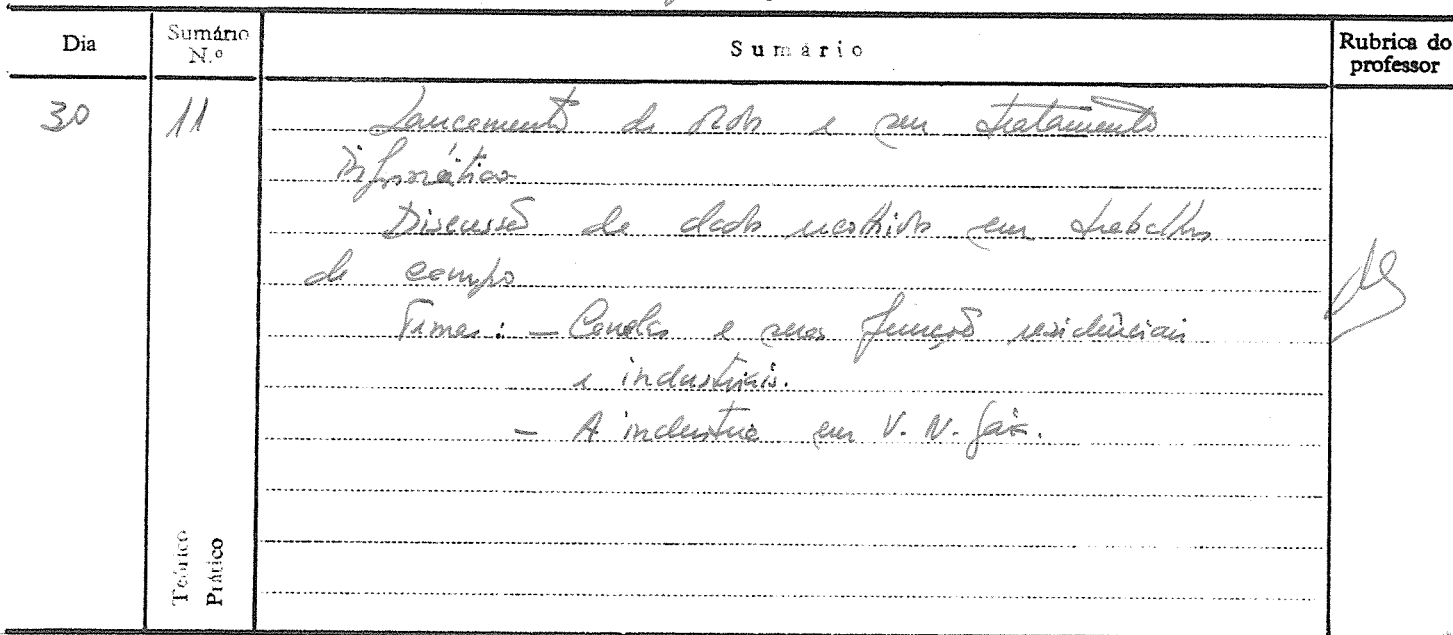 Dia
Sumário N.º
Sumário
Rubrica do professor
30
11
Lançamento de e seu tratamento
informático
Discussão de dados em trabalhos
de campo
Temas: – Canelas e suas função residênciais
e industriais.
– A industria em V. N. Gaia.
Teórico
Prático